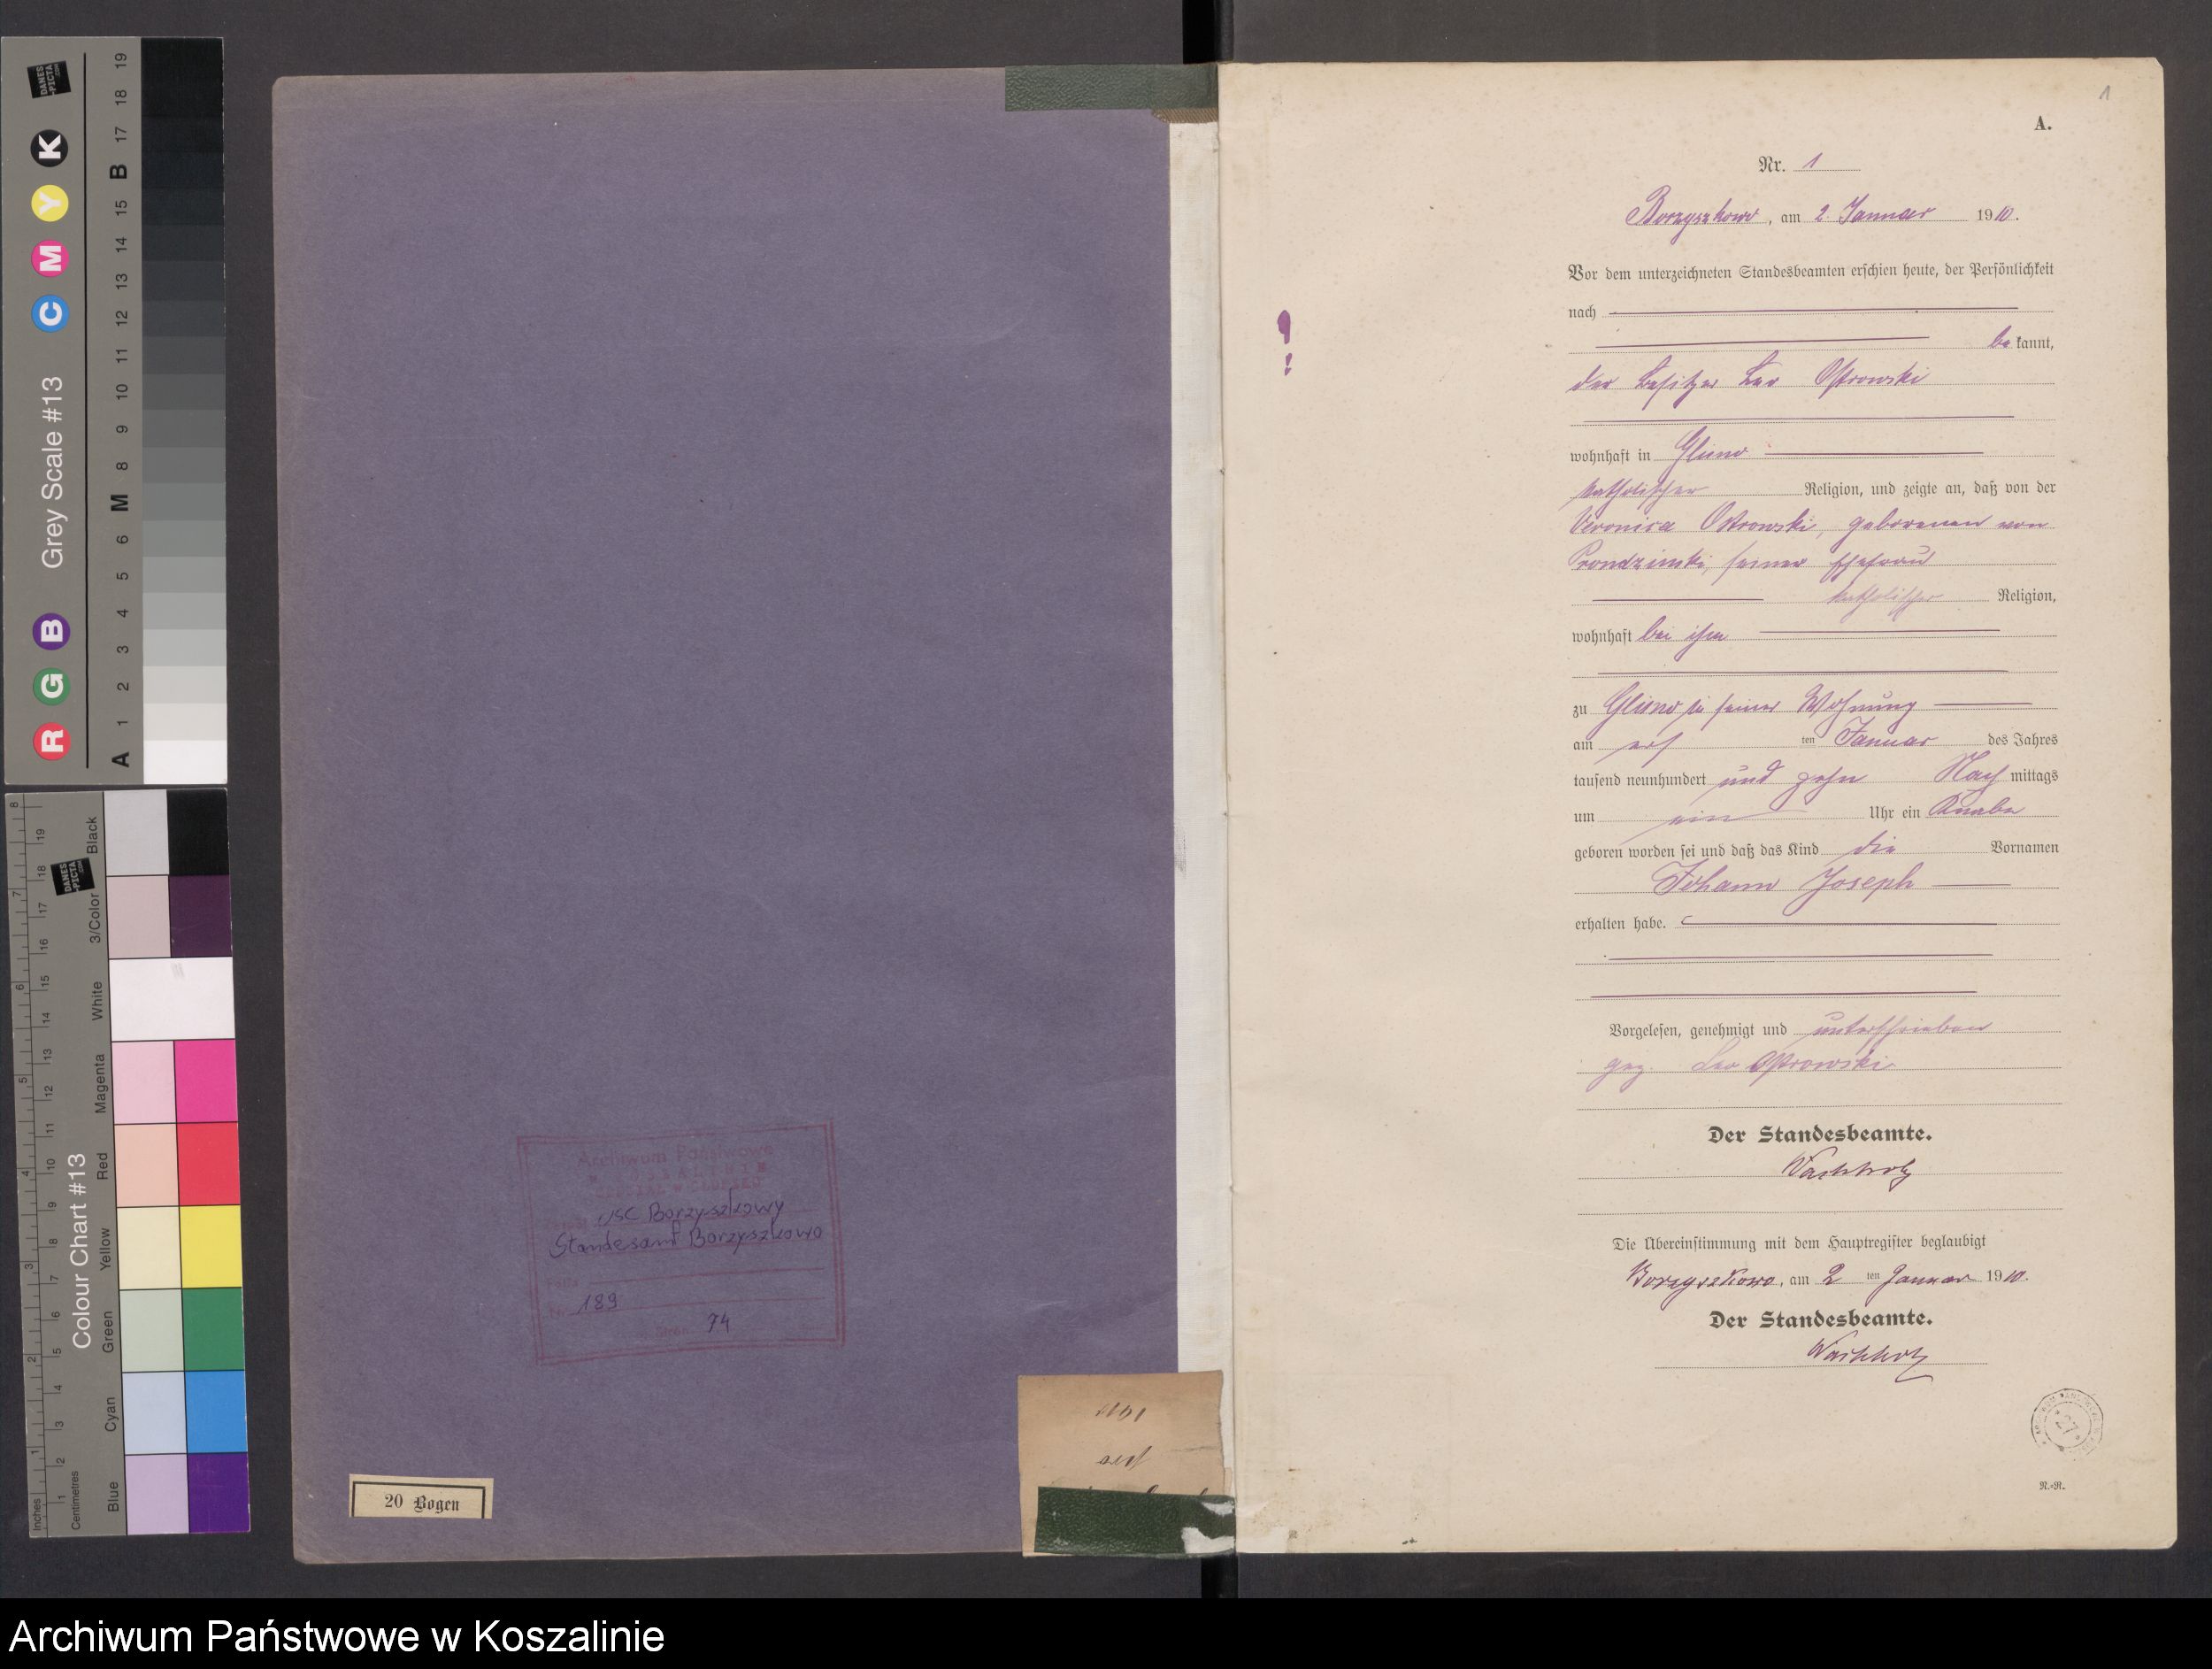 DANES
-PICTA
.COM
Grey Scale #13
R G B C M Y K
A 1 2 3 4 5 6 M 8 9 10 11 12 13 14 15 B 17 18 19
Colour Chart #13
Inches
Centimetres
Blue
Cyan
Green
Yellow
Red
Magenta
White
3/Color
Black
Archiwum Państwowe
USC Borzyszkowy
Standesamt Borzyszkowo
189
74
20 Bogen
1
A.
Nr. 1
Borzyszkowo, am 2. Januar 1910.
Vor dem unterzeichneten Standesbeamten erschien heute, der Persönlichkeit
nach
bekannt,
der Besitzer Leo Ostrowski
wohnhaft in Glisno
katholischer Religion, und zeigte an, daß von der
Veronica Ostrowski, geborenen von
Prondzinski, seiner Ehefrau
katholischer Religion,
wohnhaft bei ihm
zu Glisno in seiner Wohnung
am ersten Januar des Jahres
tausend neunhundert und zehn Nachmittags
um ein Uhr ein Knabe
geboren worden sei und daß das Kind die Vornamen
Johann Joseph
erhalten habe.
Vorgelesen, genehmigt und unterschrieben
gez. Leo Ostrowski
Der Standesbeamte.
Die Übereinstimmung mit dem Hauptregister beglaubigt
Borzyszkowo, am 2ten Januar 1910.
Der Standesbeamte.
27
N.-R.
Archiwum Państwowe w Koszalinie